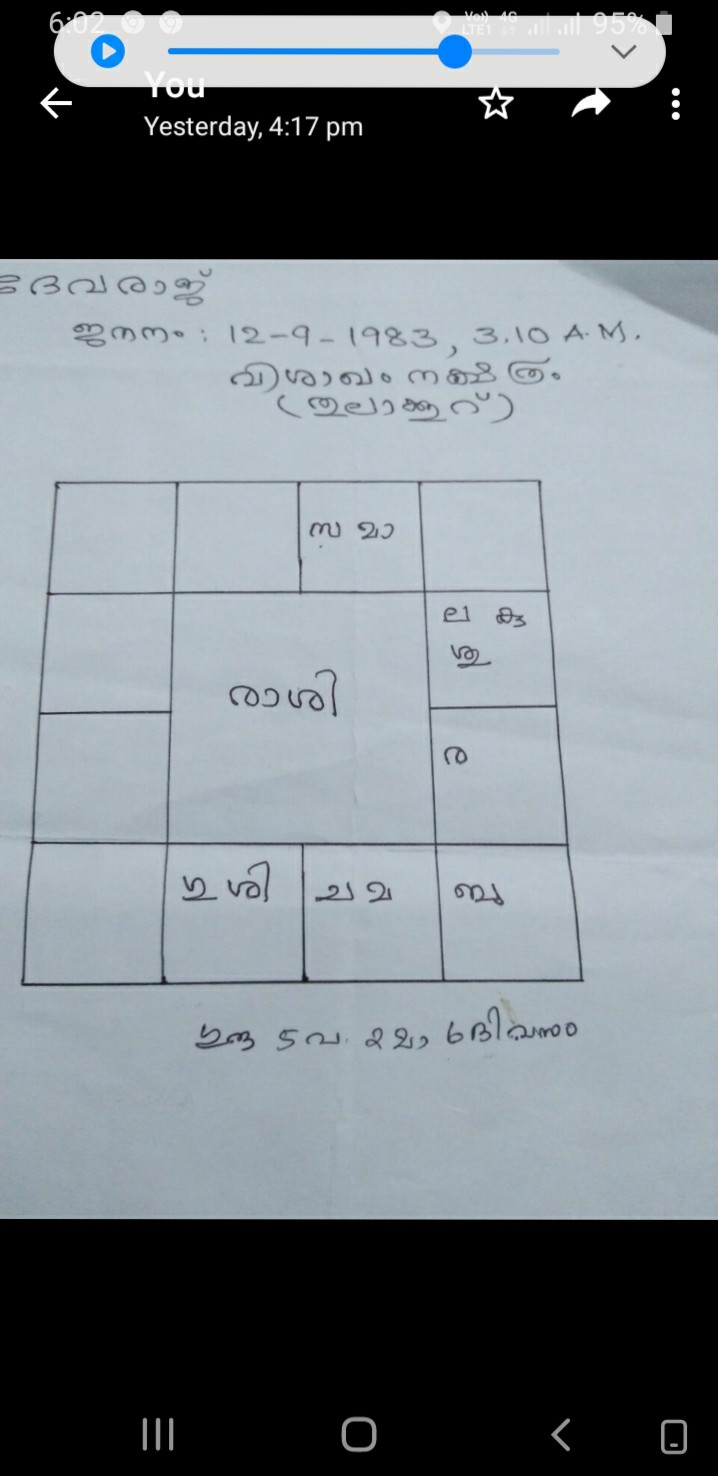 6:02 Vo) 4G LTE1 95%
You
Yesterday, 4:17 pm
ദേവരാജ്
ജനനം : 12-9-1983, 3.10 A.M.
വിശാഖം നക്ഷത്രം
(തുലാക്കൂറ്)
സ മാ
ല കു
ശു
രാശി
ര
ഗു ശി ച മ ബു
ഗുരു 5 വ. 2 മാ 6 ദിവസം